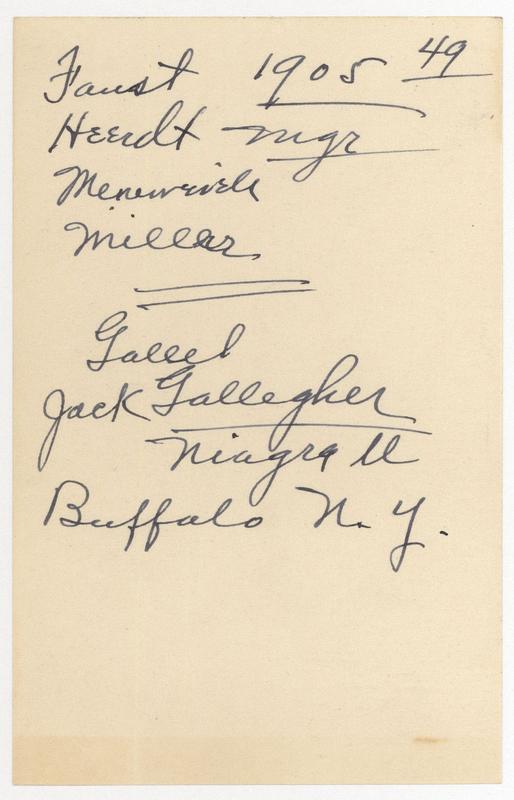 Faust 1905 49
Heerdt mgr
Menewisch
Miller
Gallel
Jack Gallegher
Niagra U
Buffalo N. Y.